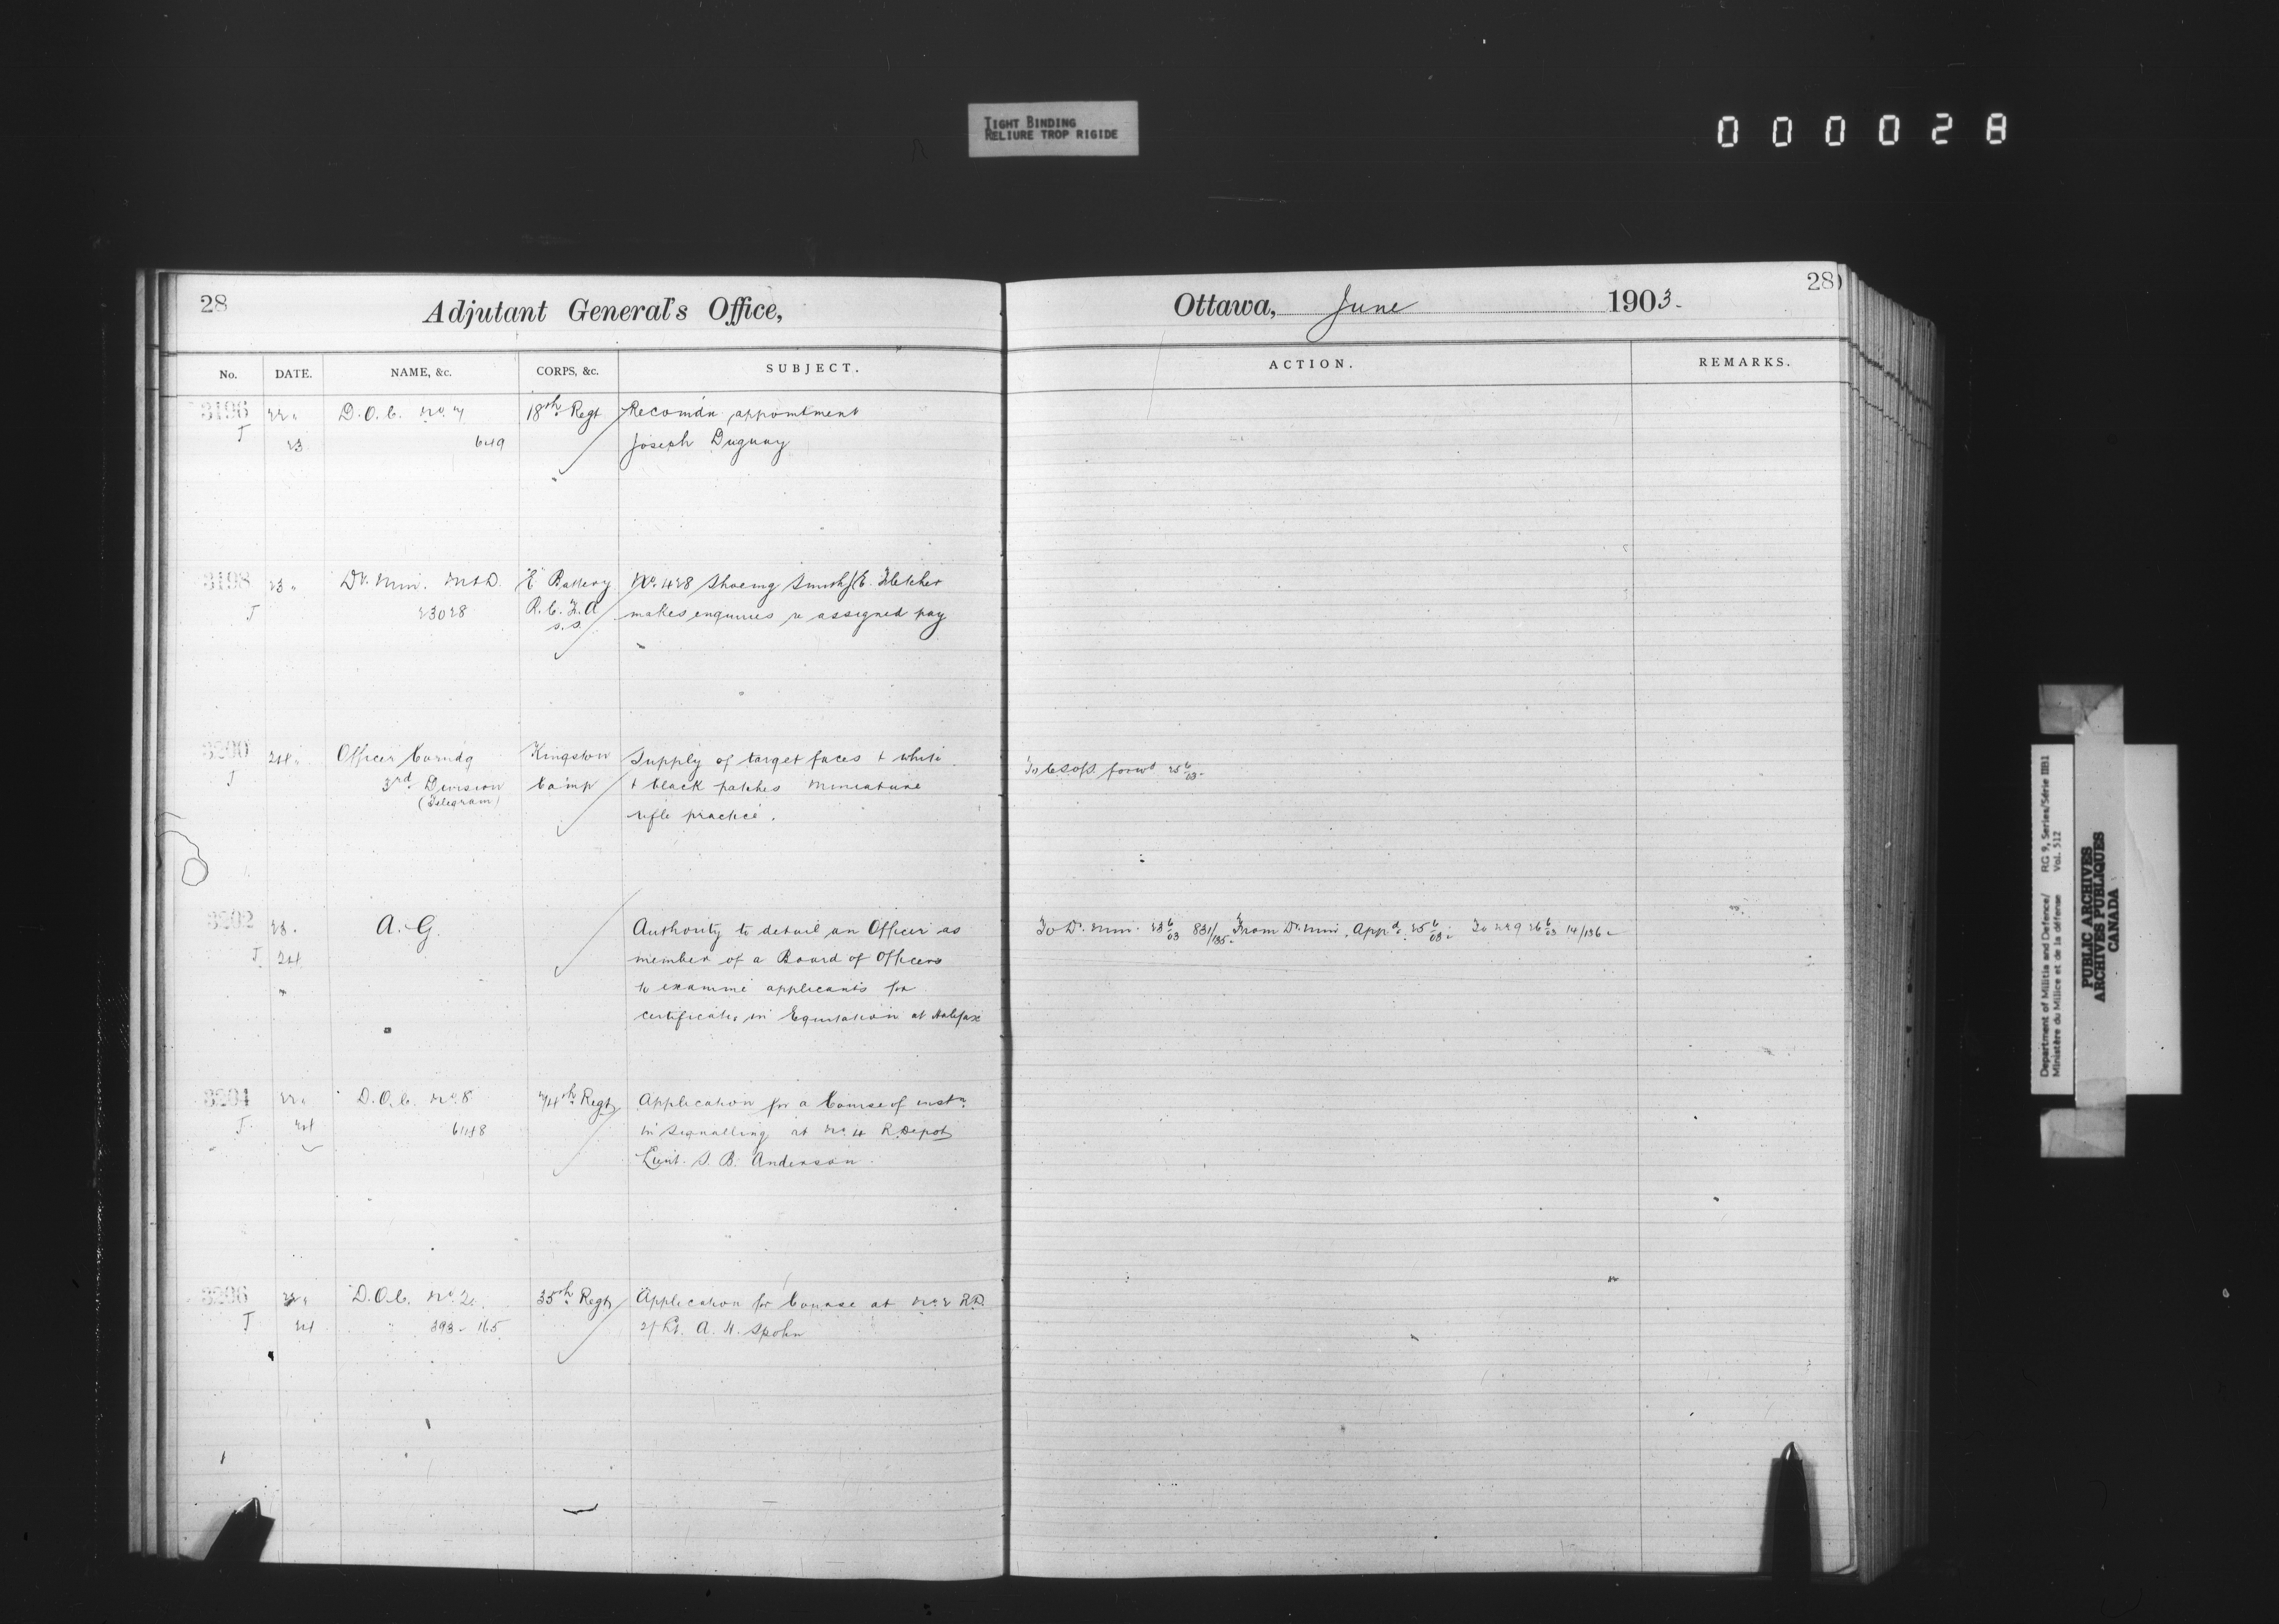 TIGHT BINDING
RELIURE TROP RIGIDE
000028
28
Adjutant General's Office,
No. DATE. NAME, &c. CORPS, &c. SUBJECT.
3196 22 D.O.C. No. 7 18th Regt Recomdn appointment
J 23 649 Joseph Duguay
3198 23 Dr. Min. M&D. "E" Battery No. 428 Shoeing Smith E. Fletcher
J 23028 R.C.F.A makes enquiries re assigned pay
S.S.
3200 24 Officer Comdg Kingston Supply of target faces & white
J 3rd Division Camp & black patches Miniature
(Telegram)
rifle practice.
3202 23 A.G. Authority to detail an Officer as
J. 24 member of a Board of Officers
to examine applicants for
certificates in Equitation at Halifax
3204 22 D.O.C. No. 8 74th Regt Application for a Course of instn
J. 24 in Signalling at No. 4 R. Depot
Lieut. S. B. Anderson
3206 22 D.O.C. No. 2. 35th Regt Application for Course at No. 2 R.D.
J 24 393-165 2/Lt. A. H. Spohn
28
Ottawa, June 1903-
ACTION. REMARKS.
forwd 25 6/03-
To Dr. Min. 23 6/03 831/135- From Dr. Min. Appd. 25 6/03 To 26 6/03 14/136-
Department of Militia and Defence/ RG 9, Series/Série IIB1
Ministère du Milice et de la défense Vol. 512
PUBLIC ARCHIVES
ARCHIVES PUBLIQUES
CANADA